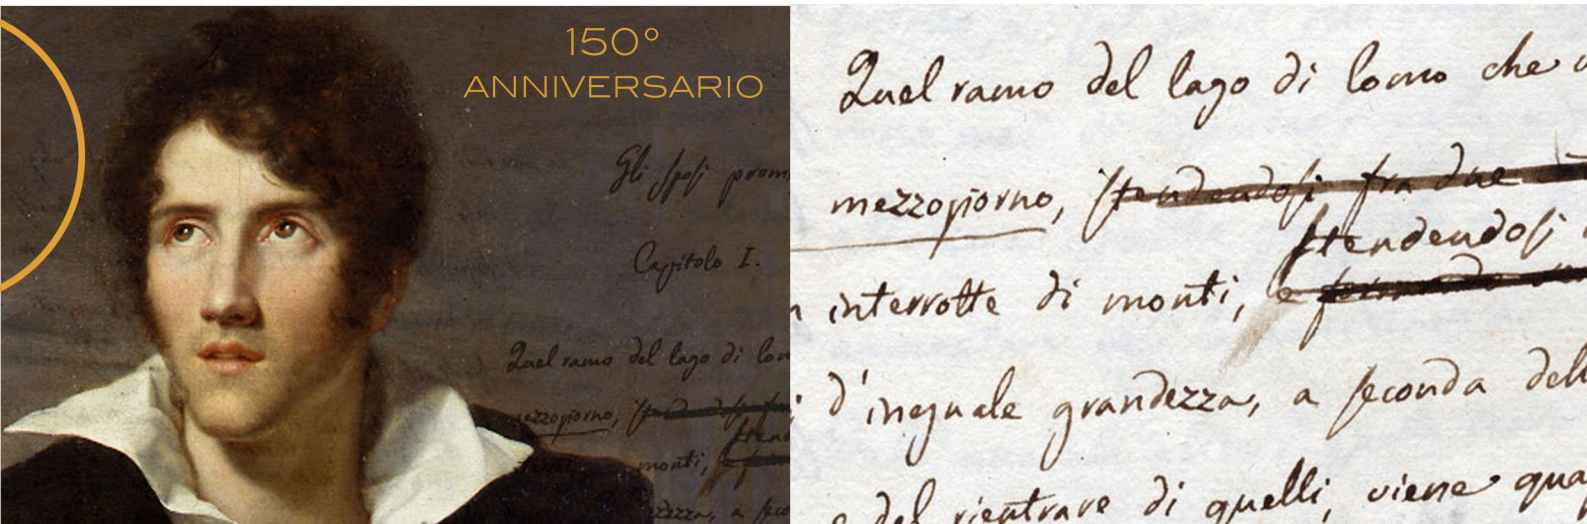 150°
ANNIVERSARIO
Gli sposi prom
Capitolo I.
Quel ramo del lago di
mezzogiorno,
monti,
a
Quel ramo del lago di Como che
mezzogiorno, stendendosi fra due
stendendosi
interrotte di monti, e
d'ineguale grandezza, a seconda
e del rientrare di quelli, viene